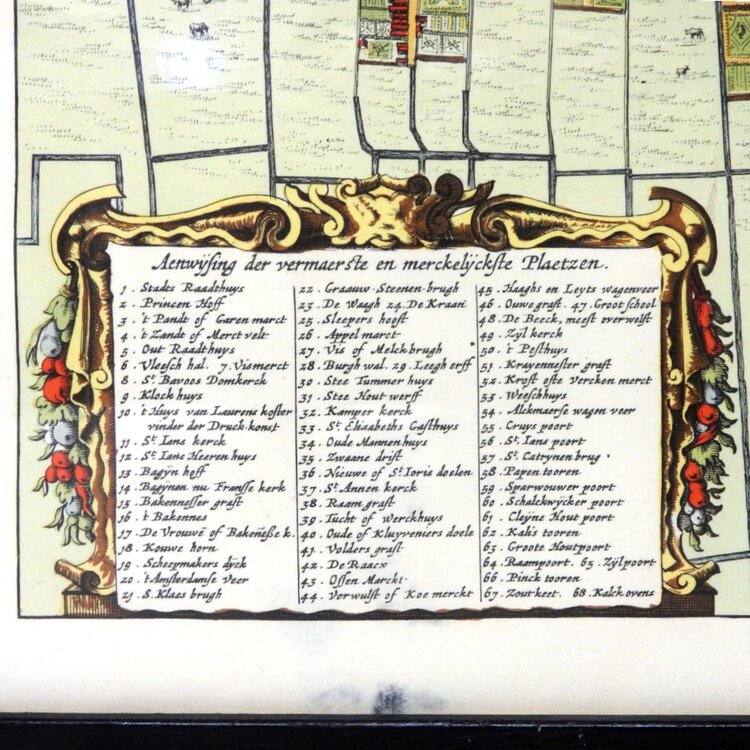 Aenwÿsing der vermaerste en merckelÿckste Plaetzen.
1. Stadts Raadthuys
2. Princen Hoff
3. 't Pandt of Garen marct
4. 't Zandt of Merct velt
5. Out Raadthuys
6. Vleesch hal. 7. Vismerct
8. St. Bavoos Domkerck
9. Klock huys
10. 't Huys van Laurens koster
vinder der Druck-konst
11. St. Ians kerck
12. St. Ians Heeren huys
13. Bagÿn hoff
14. Bagÿnen nu Franse kerk
15. Bakennesser graft
16. 't Bakennes
17. De Vrouwē of Bakeneße k.
18. Kouwe horn
19. Scheepmakers dÿck
20. 't Amsterdamse veer
21. S. Klaes brugh
22. Graauw Steenen brugh
23. De Waagh 24. De Kraan
25. Sleepers hooft
26. Appel marct
27. Vis of Melck brugh
28. Burgh wal. 29. Leegh erff
30. Stee Tummer huys
31. Stee Hout werff
32. Kamper kerck
33. St. Elisabeths Gasthuys
34. Oude Mannenhuys
35. Zwaane drift
36. Nieuwe of St. Ioris doelen
37. St. Annen kerck
38. Raam graft
39. Tucht of Werckhuys
40. Oude of Kluyveniers doele
41. Volders graft
42. De Raacx
43. Ossen Marckt
44. Verwulft of Koe merckt
45. Haaghs en Leyts wagenveer
46. Ouwe graft. 47. Groot school
48. De Beeck, meest overwelft
49. Zÿl kerck
50. 't Pesthuys
51. Krayennester graft
52. Kroft ofte Vercken merct
53. Weeschhuys
54. Alckmaerse wagen veer
55. Cruys poort
56. St. Ians poort
57. St. Catrynen brug
58. Papen tooren
59. Sparwouwer poort
60. Schalckwÿcker poort
61. Cleÿne Hout poort
62. Kals tooren
63. Groote Houtpoort
64. Raampoort. 65. Zÿlpoort
66. Pinck tooren
67. Zoutkeet. 68. Kalck ovens